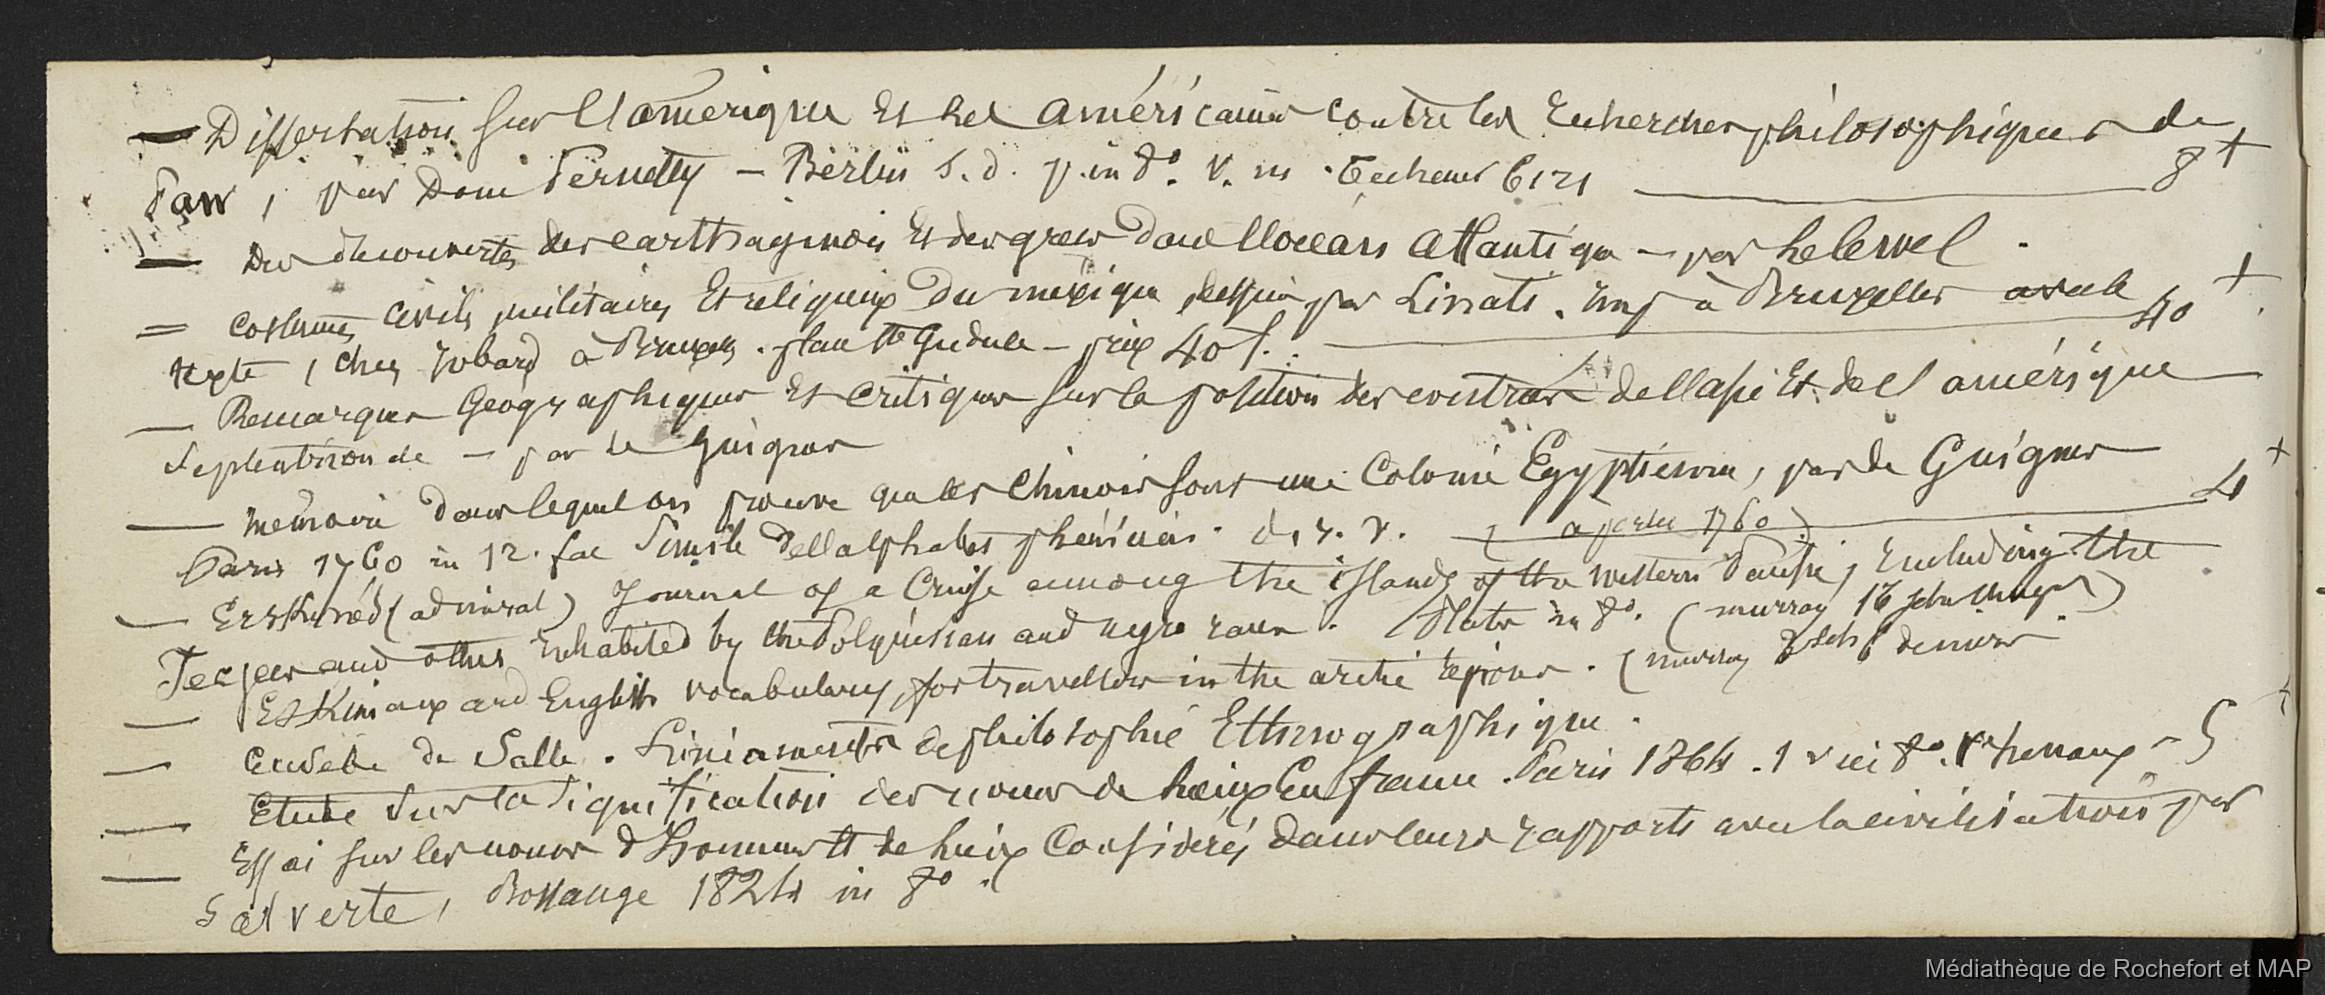 — Dissertation sur l'amerique et les américains contre les recherches philosophiques de
Paw, par Dom Pernetty — Berlin s. d. p. in 8°. v. m. Techener 6121 — 8 +
— Des découvertes des carthaginois et des grecs dans l'océan atlantique — par Lelewel.
= costumes civils, militaires et religieux du mexique, dessinés par Linati. imp à Bruxelles avec le +
texte, chez Jobard à Bruxelles. place Ste Gudule — prix 40 f. — 40
— Remarques Geographiques et critiques sur la position des contrées de l'asie et de l'amérique
septentrionale — par de Guignes
— memoire dans lequel on prouve que les chinois sont une Colonie Egyptienne, par de Guignes +
Paris 1760 in 12. fac simile de l'alphabet phénicien. d. r. v. (1760) — 4
— Erskine (admiral) Journal of a Cruise among the islands of the western Pacific, Including the
Feejees and others inhabited by the Polynesian and negro races. Plates in 8°. (murray 16 schellings)
— Eskimaux and English vocabulary, for travellers in the arctic regions. (murray 3 sch 6 deniers
— Eusebe de Salle. Liniaments de philosophie Ethnographique.
— Etude sur la signification des noms de lieux en france. Paris 1864. 1 v in 8°. — 5 +
— Essai sur les noms d'hommes et de lieux considérés dans leurs rapports avec la civilisation par
Salverte, Bossange 1824 in 8°.
Médiathèque de Rochefort et MAP